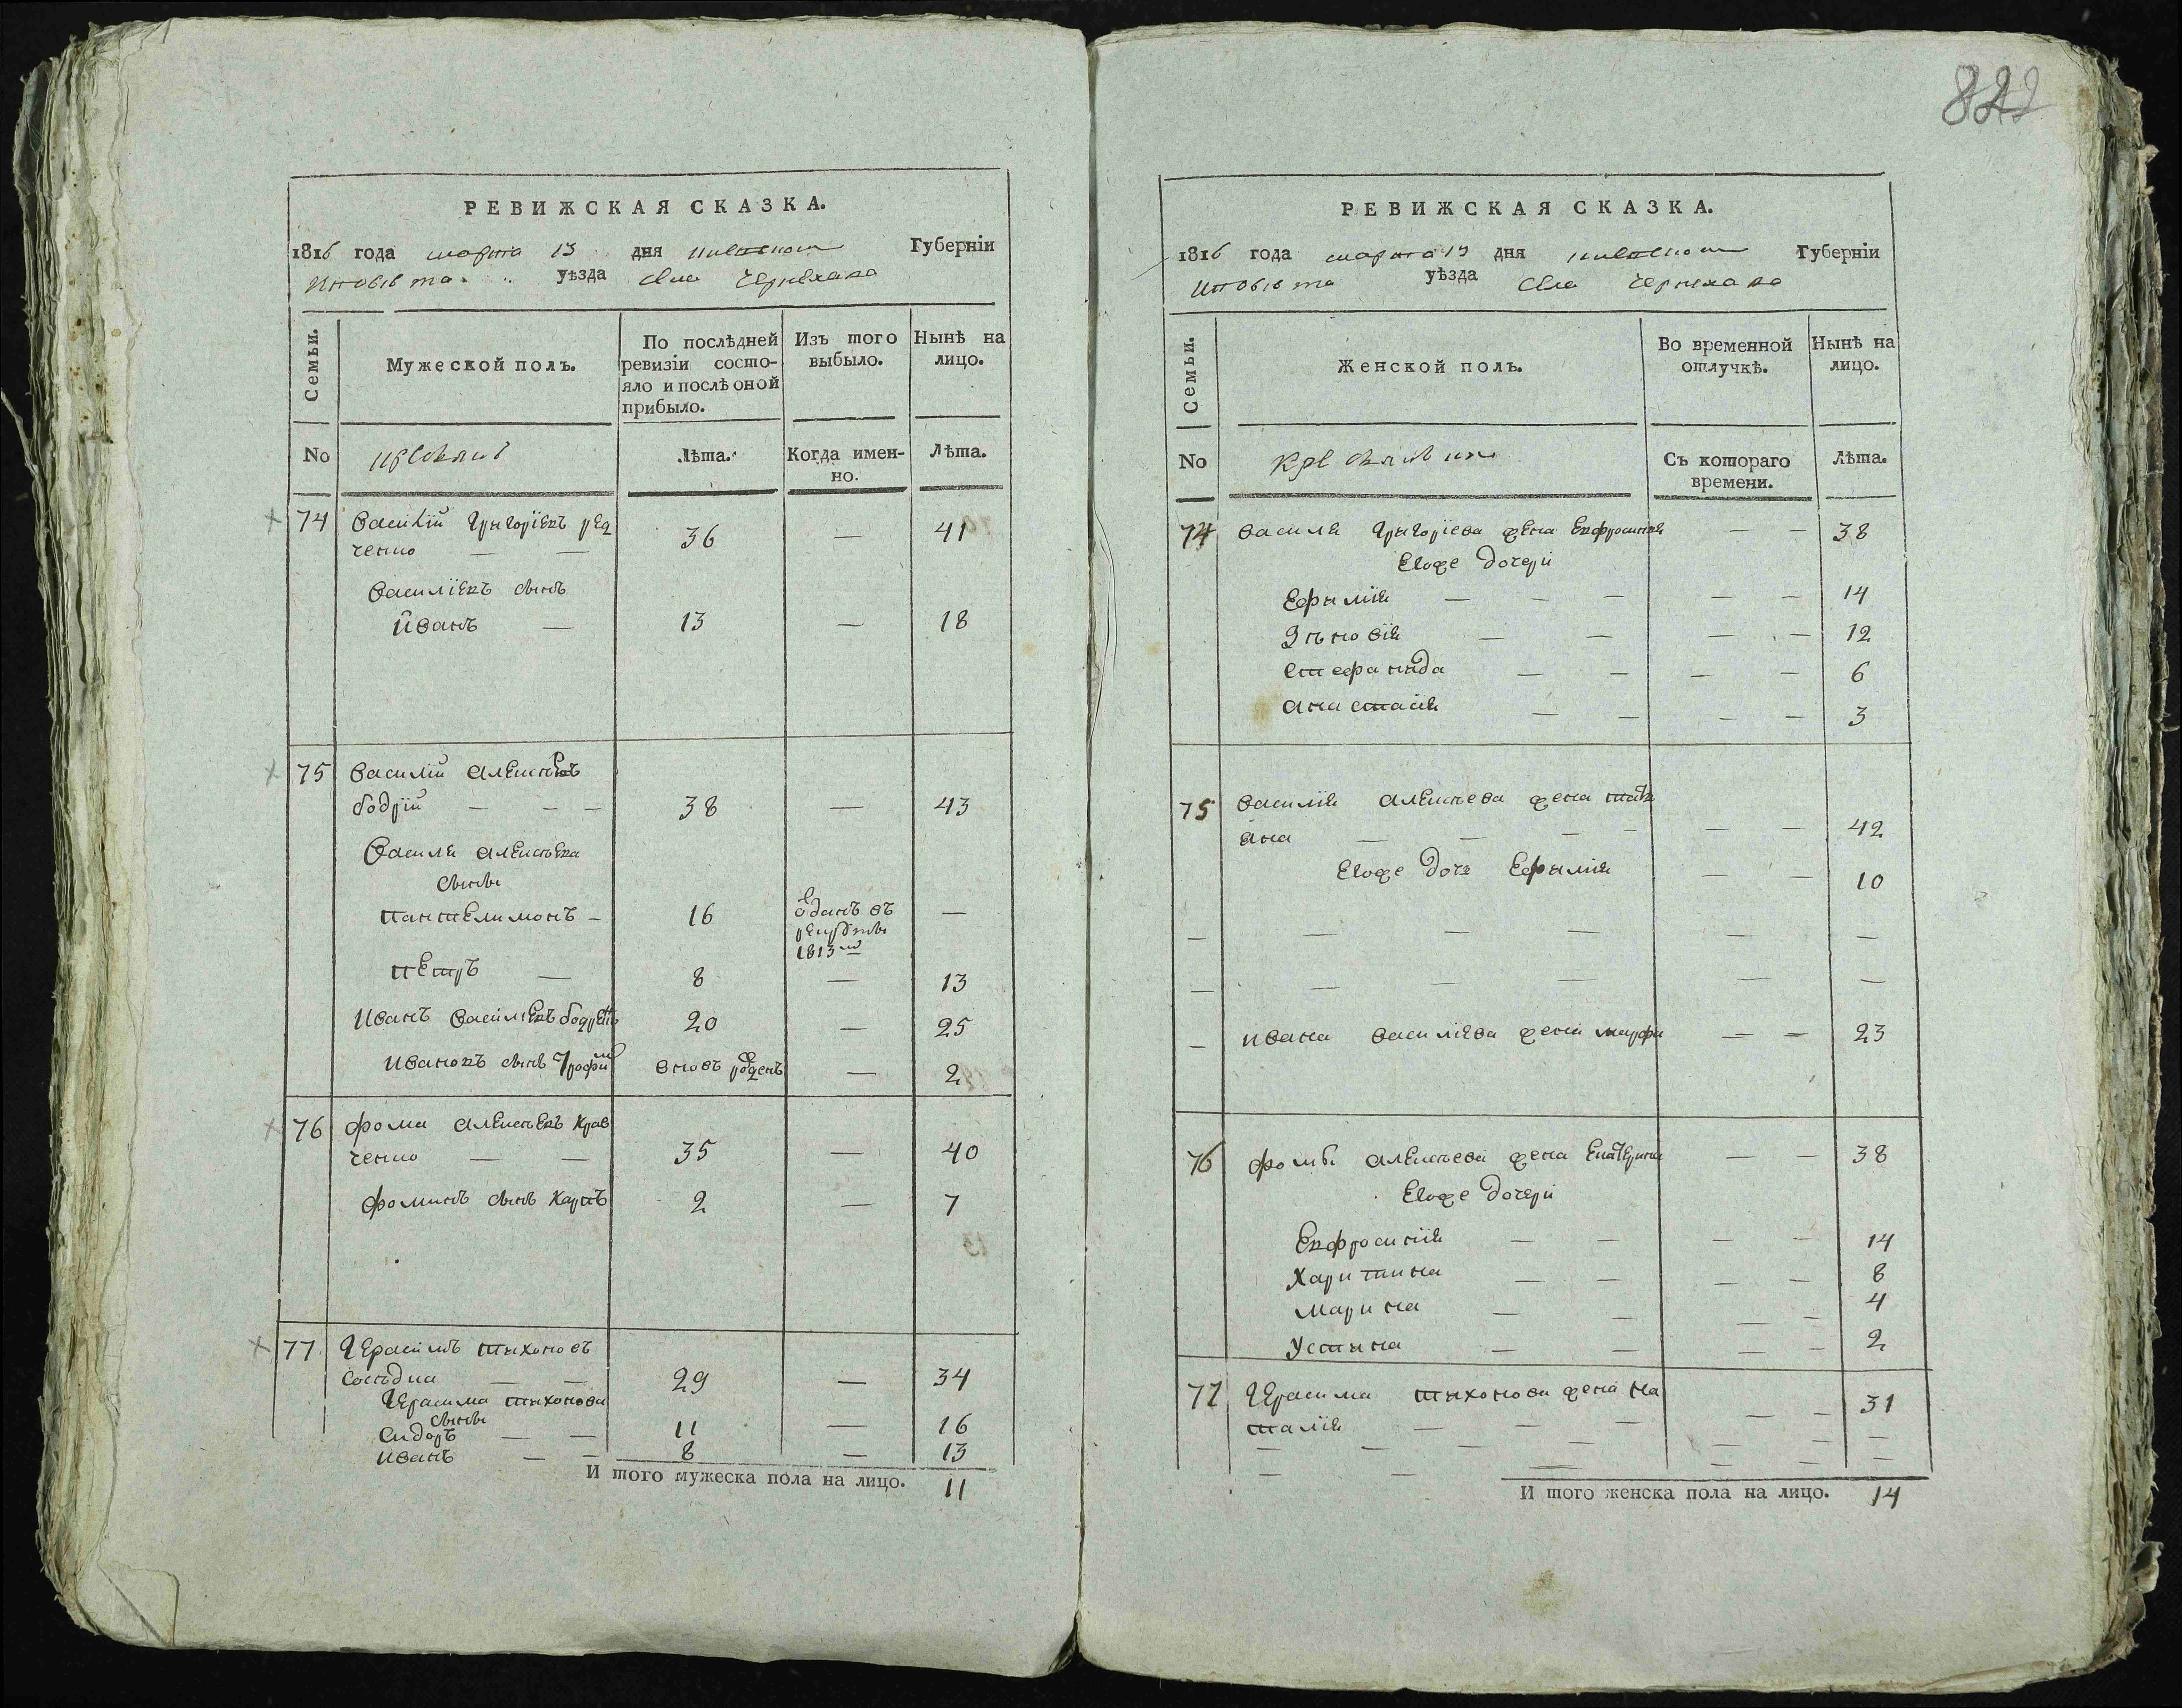 822
РЕВИЖСКАЯ СКАЗКА.
1816 года марта 13 дня киевской Губернїи
уѣзда села Черняхова
Семьи.
Мужеской полъ.
По послѣдней ревизїи состо-
яло и послѣ оной
прибыло.
Изъ того
выбыло.
Нынѣ на
лицо.
No
Лѣта.
Когда имен-
но.
Лѣта.
74 Василїй Григорїевъ
ченко — — 36 — 41
Василїевъ сынъ
Иванъ — 13 — 18
75 Василїй Алексѣевъ
бодрїй — — — 38 — 43
Василя Алексѣева
сыны
Пантелимонъ — 16 одданъ въ рекруты 1813 —
Петръ — 8 — 13
Иванъ Василїевъ 20 — 25
Ивановъ сынъ Трофим вновъ рожденъ — 2
76 Фома Алексѣевъ Крав
ченко — — 35 — 40
Фоминъ сынъ Карпъ 2 — 7
77 Герасимъ Тихоновъ
— — 29 — 34
Герасима Тихонова
сыны
Сидоръ — — 11 — 16
Иванъ — — 8 — 13
И того мужеска пола на лицо. 11
РЕВИЖСКАЯ СКАЗКА.
1816 года марта 13 дня киевской Губернїи
уѣзда села Черняхова
Семьи.
Женской полъ.
Во временной
отлучкѣ.
Нынѣ на
лицо.
No
Съ котораго
времени.
Лѣта.
74 Василя Григорїева жена Евфросинїя — — 38
Егоже дочери
Ефимїя — — — — — 14
Зѣновїя — — — — 12
Стефанида — — — — 6
Анастасїя — — — — 3
75 Василїя Алексѣева жена Татї
яна — — — — — — 42
Егоже дочь Ефимїя — — 10
— — — — — —
— — — — — —
— Ивана Василїева жена Марфа — — 23
76 Фомы Алексѣева жена Екатерина — — 38
Егоже дочери
Евфросинїя — — — — 14
Харитина — — — — 8
Марина — — — — 4
Устина — — — — 2
77 Герасима Тихонова жена На
талїя — — — — — 31
— — — — — — —
— — — — — —
И того женска пола на лицо. 14